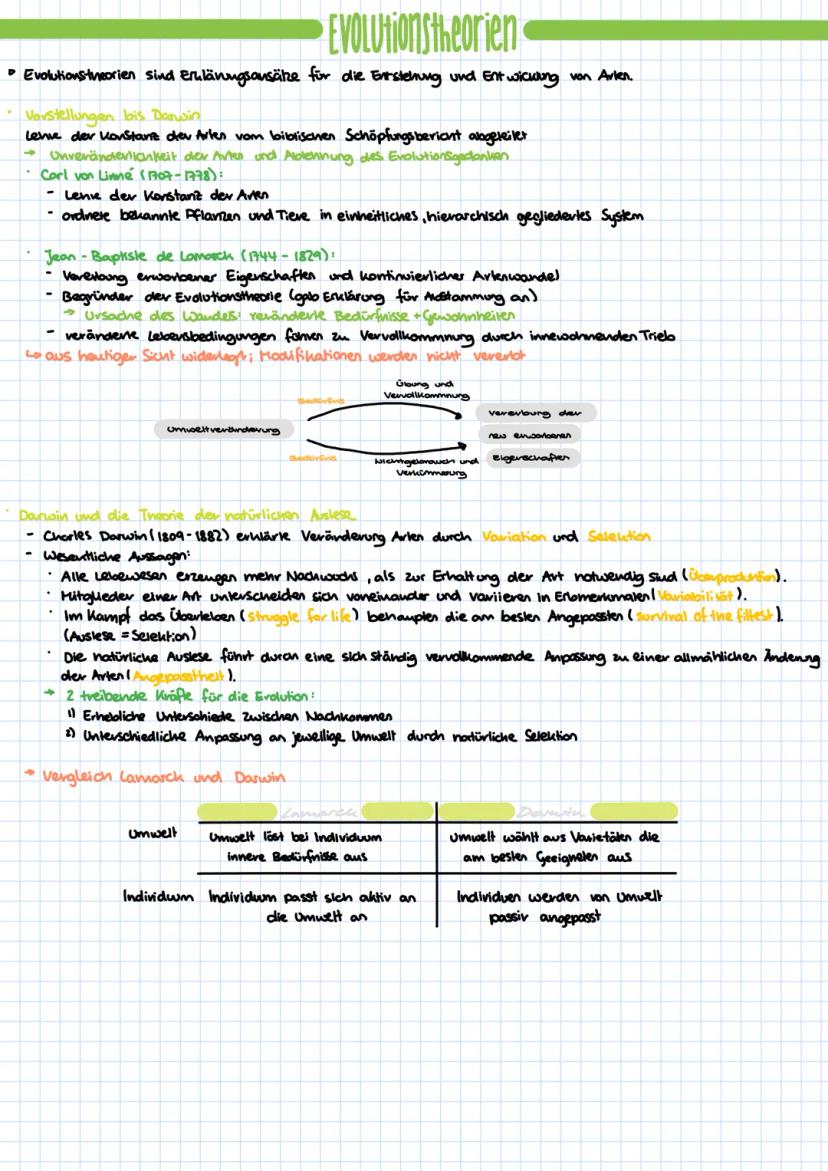 Evolutionstheorien
Evolutionstheorien sind Erklärungsansätze für die Entstehung und Entwicklung von Arten.
Vorstellungen bis Darwin
Lehre der Konstanz der Arten vom biblischen Schöpfungsbericht abgeleitet
→ Unveränderlichkeit der Arten und Ablehnung des Evolutionsgedanken
· Carl von Linné (1707-1778):
- Lehre der Konstanz der Arten
- ordnete bekannte Pflanzen und Tiere in einheitliches, hierarchisch gegliedertes System
· Jean-Baptiste de Lamarck (1744-1829):
- Vererbung erworbener Eigenschaften und kontinuierlicher Artenwandel
- Begründer der Evolutionstheorie (gab Erklärung für Abstammung an)
→ Ursache des Wandels: veränderte Bedürfnisse + Gewohnheiten
- veränderte Lebensbedingungen führen zu Vervollkommnung durch innewohnenden Trieb
↳ aus heutiger Sicht widerlegt; Modifikationen werden nicht vererbt
Übung und
Vervollkommnung
Bedürfnis
Umweltveränderung
Vererbung der
neu erworbenen
Eigenschaften
Bedürfnis
Nichtgebrauch und
Verkümmerung
· Darwin und die Theorie der natürlichen Auslese
- Charles Darwin (1809-1882) erklärte Veränderung Arten durch Variation und Selektion
- Wesentliche Aussagen:
· Alle Lebewesen erzeugen mehr Nachwuchs, als zur Erhaltung der Art notwendig sind (Überproduktion).
· Mitglieder einer Art unterscheiden sich voneinander und variieren in Erbmerkmalen (Variabilität).
· Im Kampf das Überleben (struggle for life) behaupten die am besten Angepassten (survival of the fittest).
(Auslese = Selektion)
· Die natürliche Auslese führt durch eine sich ständig vervollkommende Anpassung zu einer allmählichen Änderung
der Arten (Angepasstheit).
→ 2 treibende Kräfte für die Evolution:
1) Erhebliche Unterschiede zwischen Nachkommen
2) Unterschiedliche Anpassung an jeweilige Umwelt durch natürliche Selektion
→ Vergleich Lamarck und Darwin
Lamarck Darwin
Umwelt Umwelt löst bei Individuum Umwelt wählt aus Varietäten die
innere Bedürfnisse aus am besten Geeigneten aus
Individuum Individuum passt sich aktiv an Individuen werden von Umwelt
die Umwelt an passiv angepasst